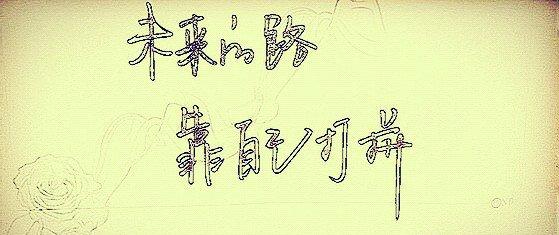 未来的路
靠自己打拼